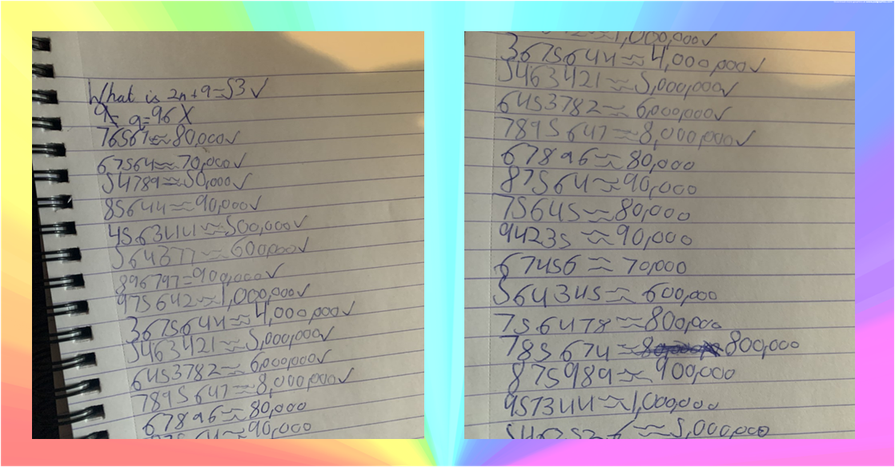 What is 2n+9=53 ✓
9= 9=96 X
76567≈80,000✓
67564≈70,000✓
54789≈50,000✓
85644≈90,000✓
4563444≈500,000✓
564377≈600,000✓
896797=900,000✓
975642≈1,000,000✓
3675644≈4,000,000✓
5463421≈5,000,000✓
6453782≈6,000,000✓
7895647≈8,000,000✓
67896≈80,000
≈90,000
≈1,000,000✓
3675644≈4,000,000✓
5463421≈5,000,000✓
6453782≈6,000,000✓
7895647≈8,000,000✓
67896≈80,000
87564≈90,000
75645≈80,000
94235≈90,000
67456≈70,000
564345≈600,000
756478≈800,000
785674≈800,000
875989≈900,000
957344≈1,000,000
≈5,000,000